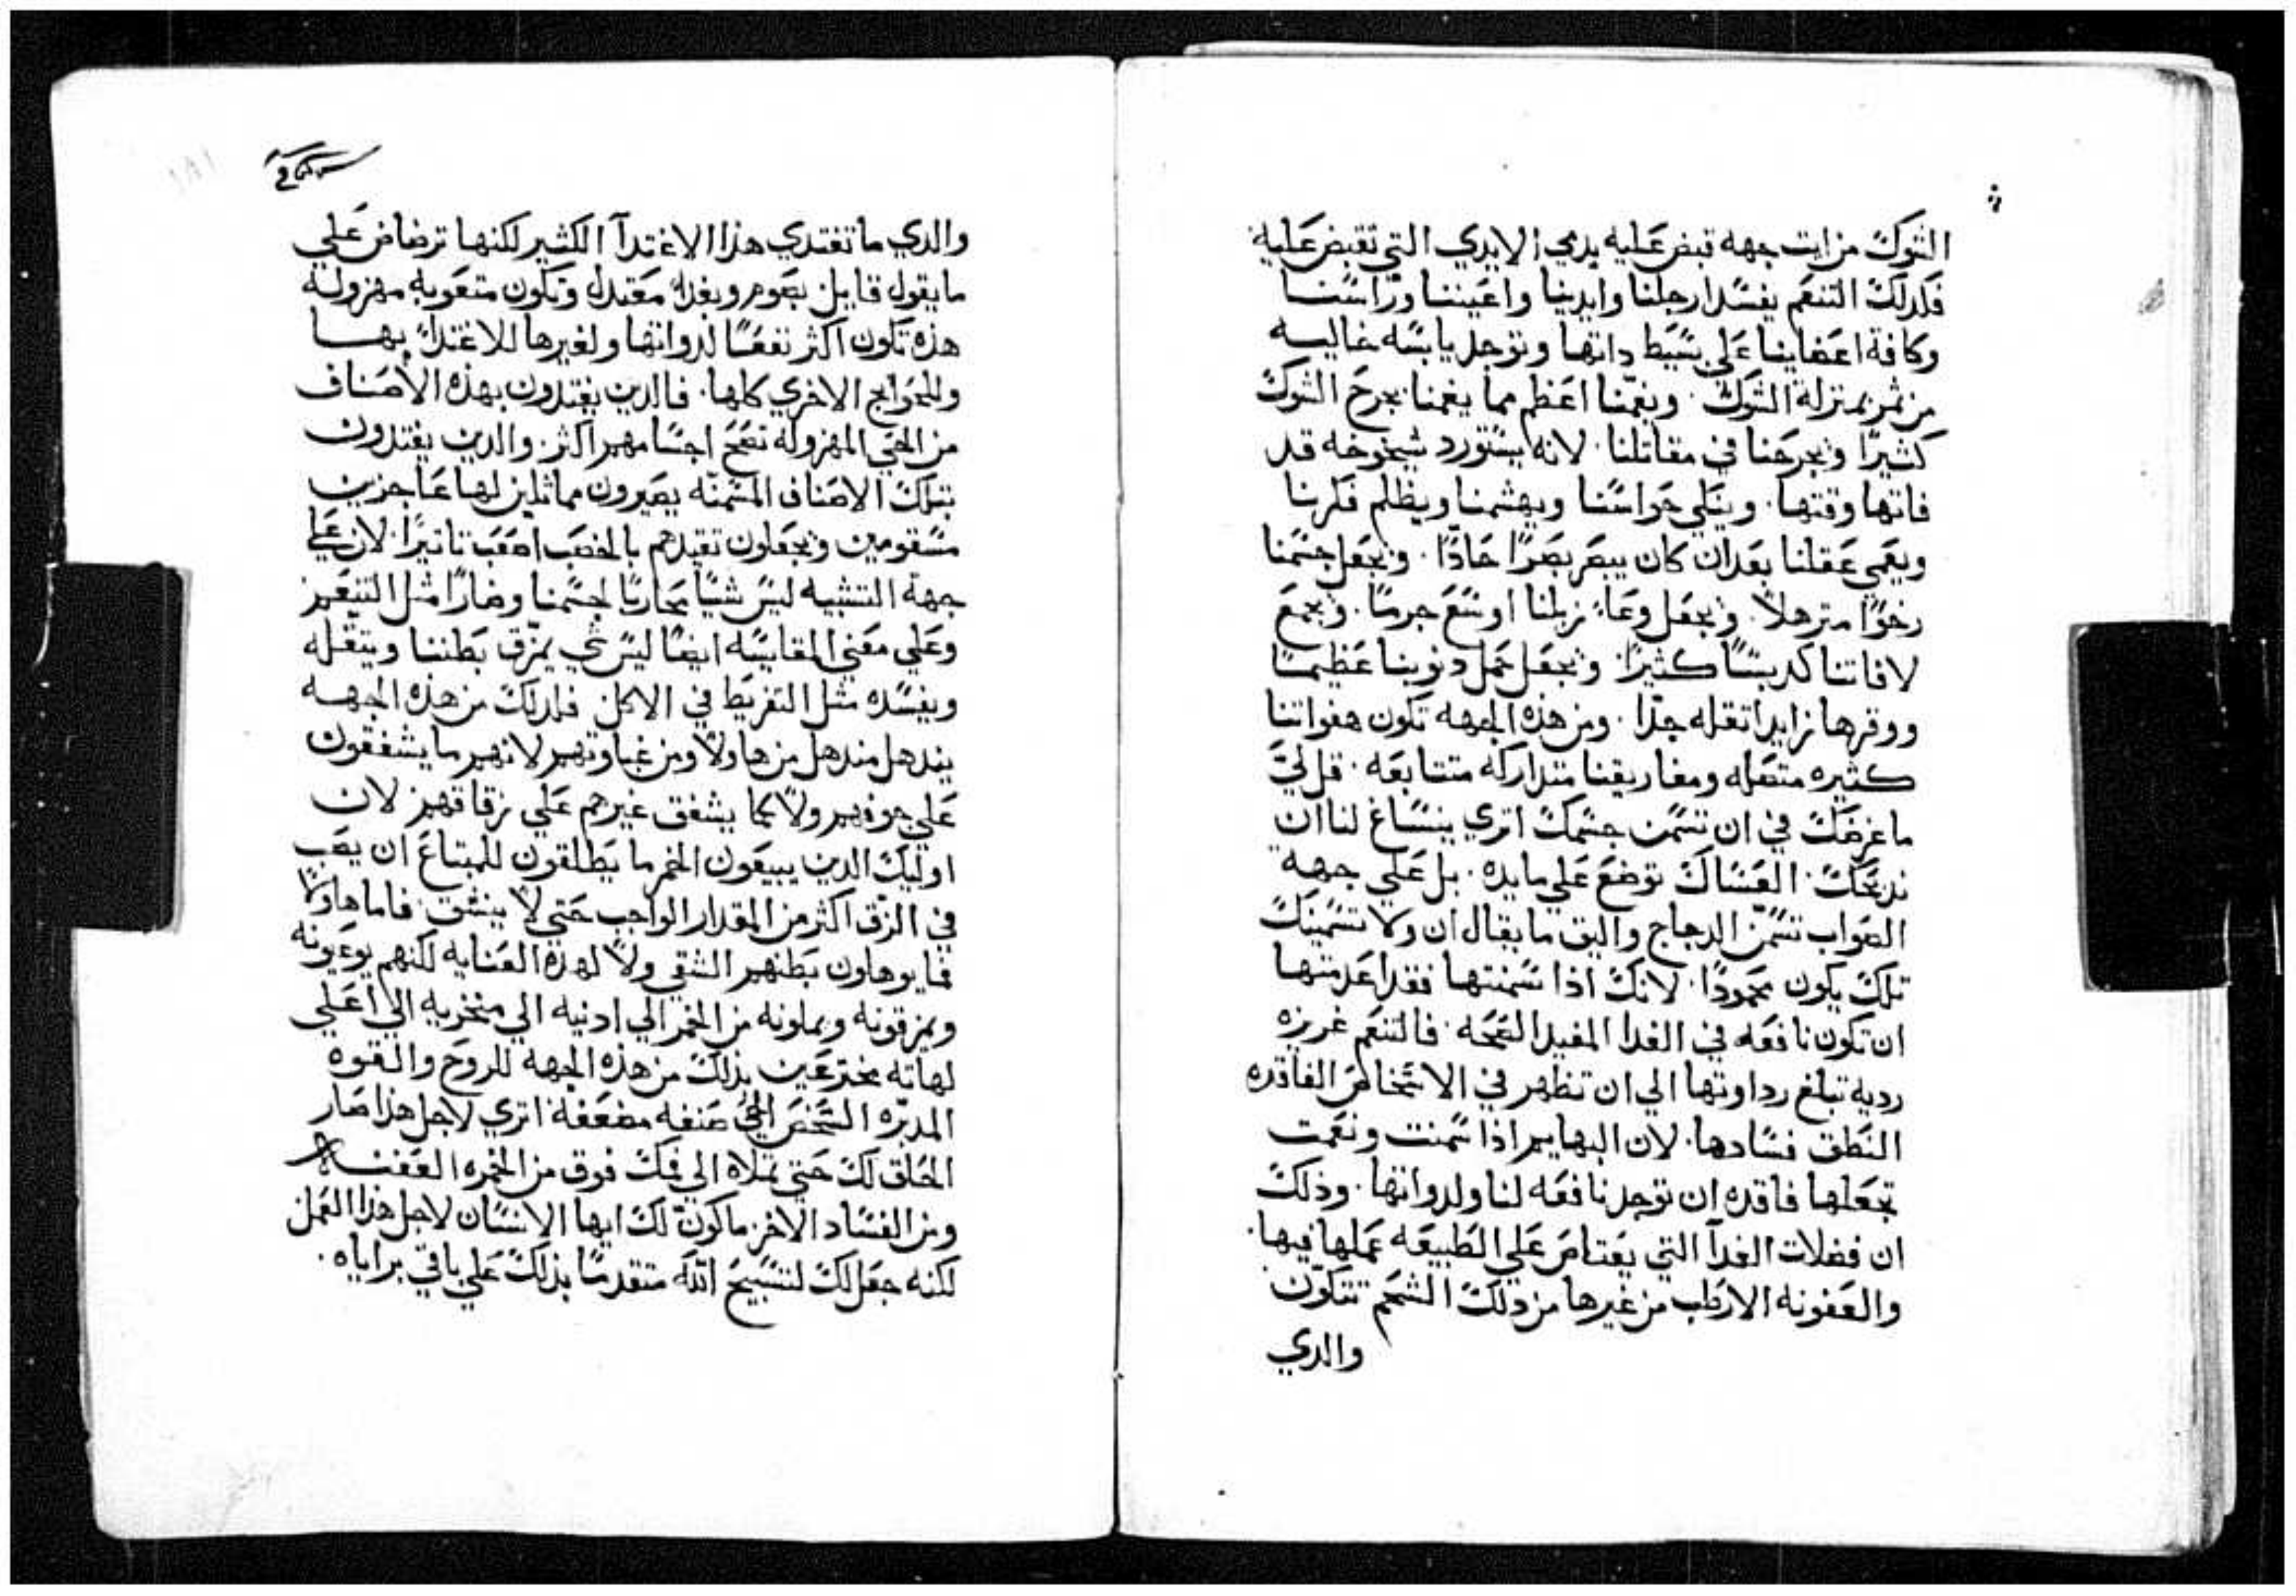 الشوك من ايت جهه قبض عليه يدمي الايدي التي تقبض عليه
فلدلك التنعم يفسد ارجلنا وايدينا واعيننا وراسنا
وكافة اعضاينا علي بسيط داتها وتوجد يابسه خاليه
من ثمر بمنزلة الشوك. ويغمنا اعظم مما يغمنا بجرح الشوك
كثيرا ويجرحنا في مقاتلنا. لانه يستورد شيخوخه قد
فاتها وقتها. ويبلي حواسنا ويهشمنا ويظلم فكرنا
ويعمي عقلنا بعد ان كان يبصر بصرا حادا. ويجعل جسمنا
رخوا مترهلا. ويجعل وعاء زبلنا اوسع جرما. ويجمع
لافاتنا كديسا كثيرا. ويجعل حمل دنوبنا عظيما
ووقرها زايدا تقله جدا. ومن هذه الجهه تكون هفواتنا
كثيره متصله ومغاريقنا متداركه متتابعه. قل لي
ما غرضك في ان تسمن جسمك اتري ينساغ لنا ان
ندبحك. العساك توضع علي مايده. بل علي جهه
الصواب تسمن الدجاج واليق ما يقال ان ولا تسمينك
تلك يكون محمودا. لانك اذا سمنتها فقد اعدمتها
ان تكون نافعه في الغدا المفيد الصحه. فالتنعم غريزه
رديه تبلغ رداوتها الي ان تظهر في الاشخاص الفاقده
النطق فسادها. لان البهايم اذا سمنت ونعمت
تجعلها فاقده ان توجد نافعه لنا ولدواتها. وذلك
ان فضلات الغدآ التي يعتاص علي الطبيعه عملها فيها.
والعفونه الارطب من غيرها من دلك الشحم تتكون
والدي
والدي ما تغتدي هذا الاغتدآ الكثير لكنها ترضاض علي
ما يقول قايل بصوم وبغداء معتدل وتكون متعوبه مهزوله
هذه تكون اكثر نفعا لدواتها ولغيرها للاغتداء بها
وللحوايج الاخري كلها. فالدين يغتدون بهذه الاصناف
من الحي المهزوله تصح اجسامهم اكثر. والدين يغتدون
بتلك الاصناف المسمنه يصيرون مماثلين لها عاجزين
مسقومين ويجعلون تقيدهم بالخصب اصعب تاتيرا. لان علي
جهة التشبيه ليس شيا محاربا لجسمنا وضارا مثل التنعم
وعلي معني المقايسه ايضا ليس شي يمزق بطننا ويتقله
ويفسده مثل التفريط في الاكل. فلدلك من هذه الجهه
يندهل مندهل من هاولا ومن غباوتهم لانهم ما يشفقون
علي جوفهم ولا كما يشفق غيرهم علي زقاقهم. لان
اوليك الدين يبيعون الخمر ما يطلقون للمبتاع ان يصب
في الزق اكثر من المقدار الواجب حتي لا ينشق. فاما هاولا
فما يوهلون بطنهم الشقي ولا لهذه العنايه لكنهم يوعبونه
ويمزقونه ويملونه من الخمر الي ادنيه الي منخريه الي اعلي
لهاته مخترعين بذلك من هذه الجهه للروح والقوه
المدبره الشخص الحي ضغطه مضعفه. اتري لاجل هذا صار
الحلق لك حتي تملاه الي فمك فوق من الخمره العفنه
ومن الفساد الاخر. ما كون لك ايها الانسان لاجل هذا العمل
لكنه جعل لك لتسبيح الله متقدما بذلك علي باقي براياه.